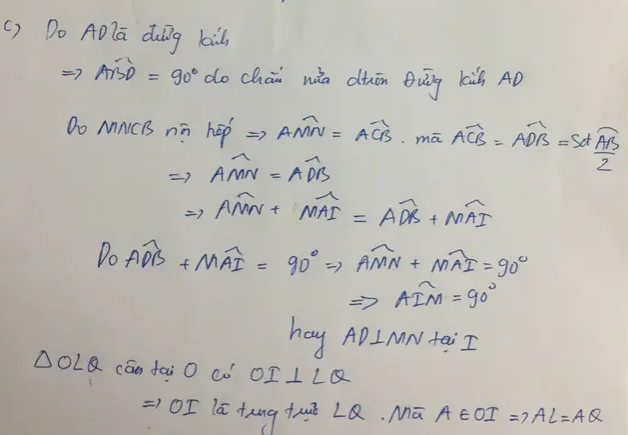 c) Do AD là đường kính
=> \widehat{ABD} = 90° do chắn nửa đtròn đường kính AD
Do MNCB nội tiếp => \widehat{AMN} = \widehat{ACB}. mà \widehat{ACB} = \widehat{ADB} = \frac{sđ \widehat{AB}}{2}
=> \widehat{AMN} = \widehat{ADB}
=> \widehat{AMN} + \widehat{MAI} = \widehat{ADB} + \widehat{MAI}
Do \widehat{ADB} + \widehat{MAI} = 90° => \widehat{AMN} + \widehat{MAI} = 90°
=> \widehat{AIM} = 90°
hay AD⊥MN tại I
△OLQ cân tại O có OI ⊥ LQ
=> OI là trung trực LQ. Mà A ∈ OI => AL = AQ